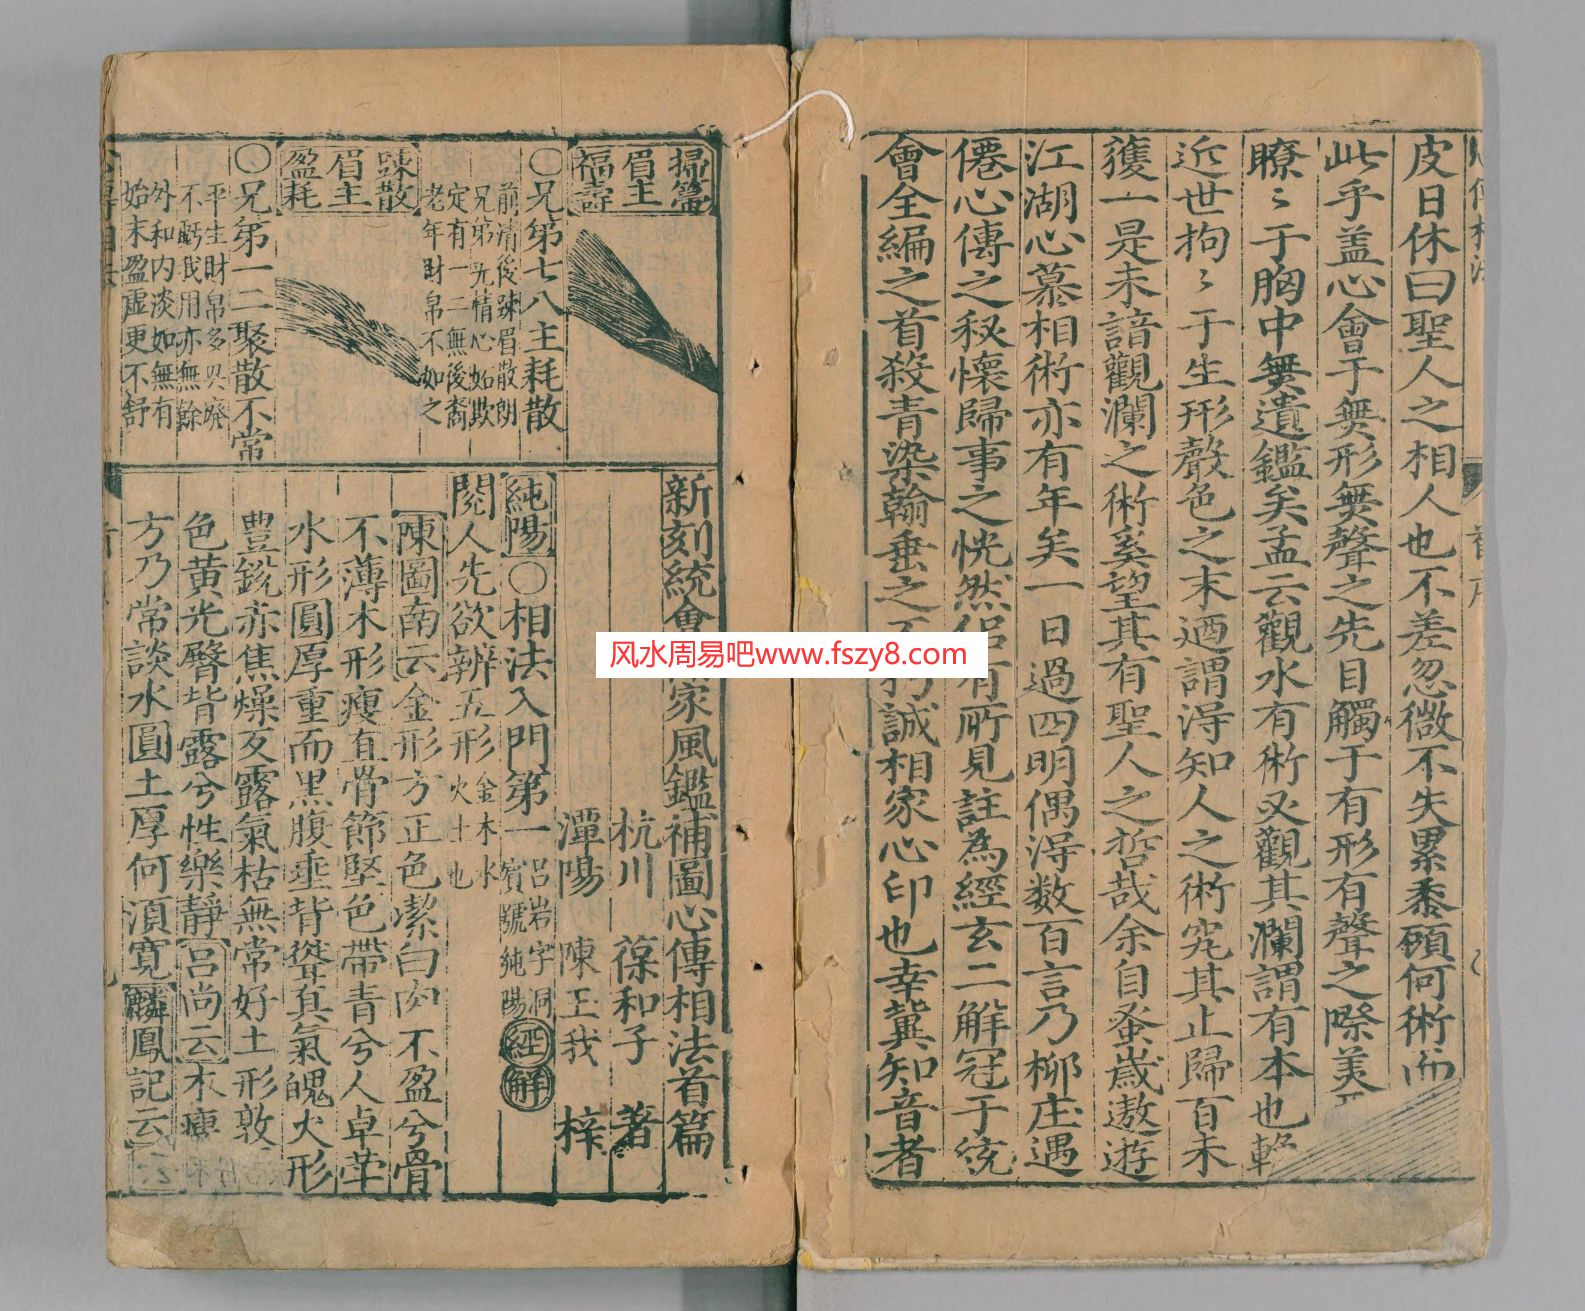 皮日休曰聖人之相人也不差忽微不失累黍顧何術而
此乎盖心會于無形無聲之先目觸于有形有聲之際美
瞭〻于胸中無遺鑑矣孟云觀水有術必觀其瀾謂有本也
近世拘〻于生形聲色之末迺謂得知人之術究其止歸百未
獲一是未諳觀瀾之術奚望其有聖人之哲哉余自蚤歲遨遊
江湖心慕相術亦有年矣一日過四明偶得数百言乃柳庄遇
僊心傳之秘懷歸事之恍然侣有所見註為經玄二解冠于統
會全編之首殺青染翰垂之不朽誠相家心印也幸冀知音者
掃箒
眉主
福壽
〇兄弟七八主耗散
前清後踈眉散朗
兄弟無情心始欺
定有一二無後裔
老年財帛不如之
踈散
眉主
盈耗
〇兄弟一二聚散不常
平生財帛多興廢
不虧我用亦無餘
外和内淡如無有
始末盈虛更不舒
新刻統會家風鑑補圖心傳相法首篇
杭川 葆和子 著
潭陽 陳王我 梓
純陽〇相法入門第一 吕岩字洞賓號純陽 經解
閱人先欲辨五形 金木水火土也
陳圖南云金形方正色潔白肉不盈兮骨
不薄木形瘦直骨節堅色帶青兮人卓犖
水形圓厚重而黑腹垂背聳真氣魄火形
豊銳赤焦燥反露氣枯無常好土形敦
色黄光臀背露兮性樂靜吕尚云木瘦
方乃常談水圓土厚何須寛麟鳳記云
风水周易吧www.fszy8.com